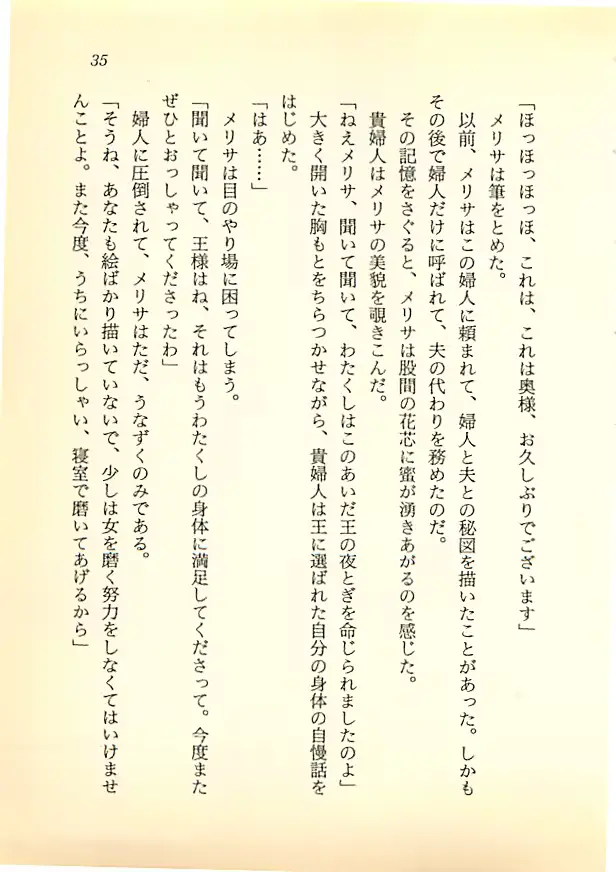 35
「ほっほっほっほ、これは、これは奥様、お久しぶりでございます」
メリサは筆をとめた。
以前、メリサはこの婦人に頼まれて、婦人と夫との秘図を描いたことがあった。しかも
その後で婦人だけに呼ばれて、夫の代わりを務めたのだ。
その記憶をさぐると、メリサは股間の花芯に蜜が湧きあがるのを感じた。
貴婦人はメリサの美貌を覗きこんだ。
「ねえメリサ、聞いて聞いて、わたくしはこのあいだ王の夜とぎを命じられましたのよ」
大きく開いた胸もとをちらつかせながら、貴婦人は王に選ばれた自分の身体の自慢話を
はじめた。
「はあ……」
メリサは目のやり場に困ってしまう。
「聞いて聞いて、王様はね、それはもうわたくしの身体に満足してくださって。今度また
ぜひとおっしゃってくださったわ」
婦人に圧倒されて、メリサはただ、うなずくのみである。
「そうね、あなたも絵ばかり描いていないで、少しは女を磨く努力をしなくてはいけませ
んことよ。また今度、うちにいらっしゃい、寝室で磨いてあげるから」